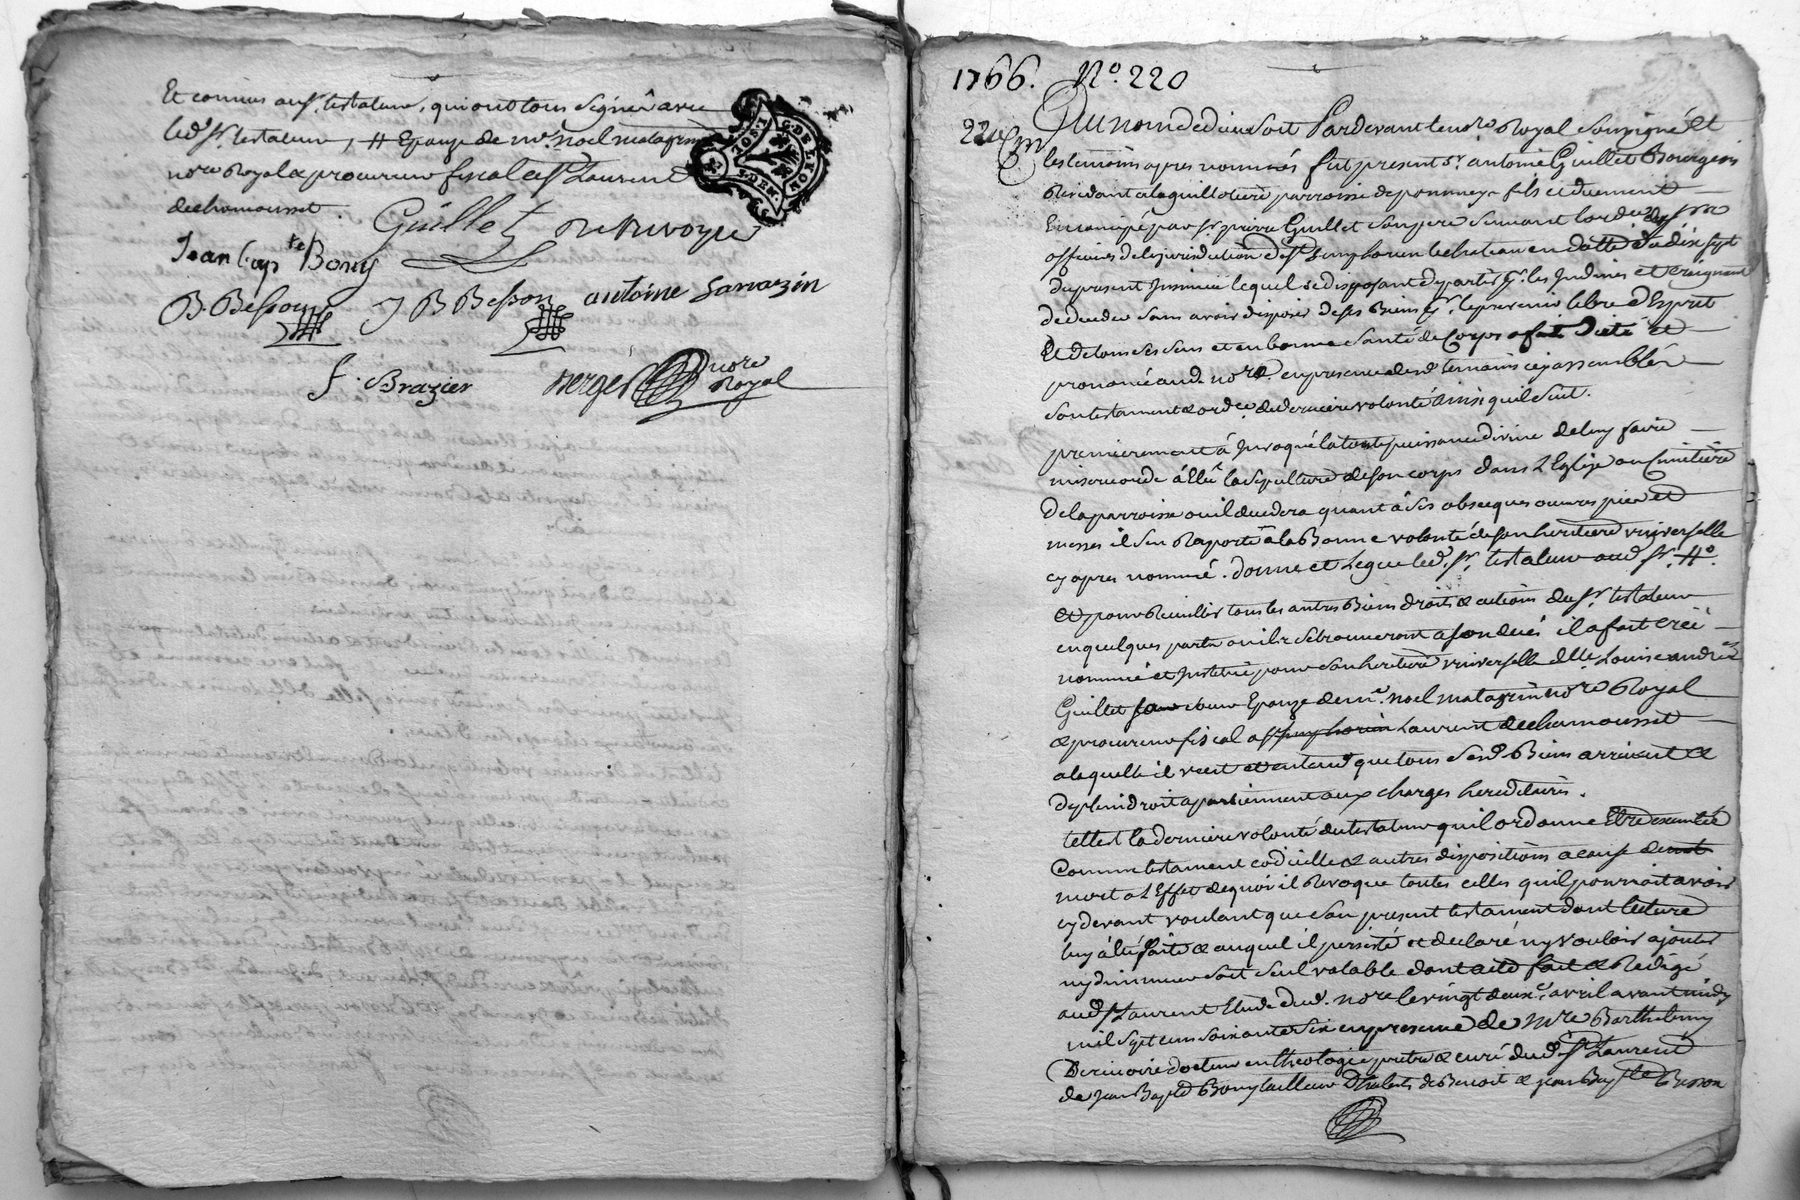 Et connus aud. sr. testateur, qui ont tous signé avec
led. sr. testateur, # Epouze de mr. noel matagrin
nore Royal & procureur fiscal a st. Laurent
dechamousset.
G. DE LYON
10 S. 1
4. DEN.
Guillet
Jean bap te Bony
B. Besson J B Besson antoine Sarrazin
f. Brazier Berger nore
Royal
1766. No. 220
220
Au nom de dieu soit Pardevant le nore Royal soussigné et
les temoins apres nommés fut present sr. antoine Guillet Bourgeois
Residant a laguillotiere parroisse de fils et duement
Emancipé par sr. pierre Guillet son pere suivant lacte
officiers de la jurisdiction de st Simphorien le chateau en datte du dix sept
du present Inclus lequel se disposant de partir pr. les Indes et craignant
de deceder sans avoir disposé de ses Biens libre d'Esprit
Et de tous ses sens et en bonne santé de Corps a fait Dicté et
prononcé aud. nore. en presence desd. temoins icy assemblés
son testament & ordce. de derniere volonté ainsi quil suit.
premierement a Invoqué la toute puissance divine de luy faire
misericorde à Elû la sepulture de son corps dans l'Eglise ou Cimitière
de la parroisse ou il decedera quant à ses obseques œuvres pies et
messes il s'en Raporte à la Bonne volonté de son heritiere universelle
cy apres nommée. donne et Legue led. sr. testateur aud. sr. #
et pour Recuillir tous les autres Biens droits & actions du sr. testateur
en quelques parts ou ils se trouveront a son decés il a fait créé
nommé et Institué pour son heritiere universelle dlle. Louise andrée
Guillet sa sœur Epouze de mr. noel matagrin nore Royal
& procureur fiscal a st simphorien Laurent de chamousset
a laquelle il veut et entend que tous sesd. Biens arrivent &
de plein droit apartiennent aux charges hereditaires.
telle est la derniere volonté du testateur quil ordonne Etre executée
Comme testament codicille & autres dispositions a cause de
mort a l'Effet de quoi il Revoque toutes celles quil pourroit avoir
cy devant voulant que son present testament dont lecture
luy à été faite & auquel il persiste et declaré ny vouloir ajouter
ny diminuer soit seul valable dont acte fait & Redigé
aud. st Laurent Etude dud. nore le vingt deuxe. avril avant midy
mil sept cens soixante six en presence de Mre Barthelemy
docteur en theologie pretre & curé dud. st Laurent
de Jean Bapte Bony tailleur D'habits de Benoit & jean Bapte Besson